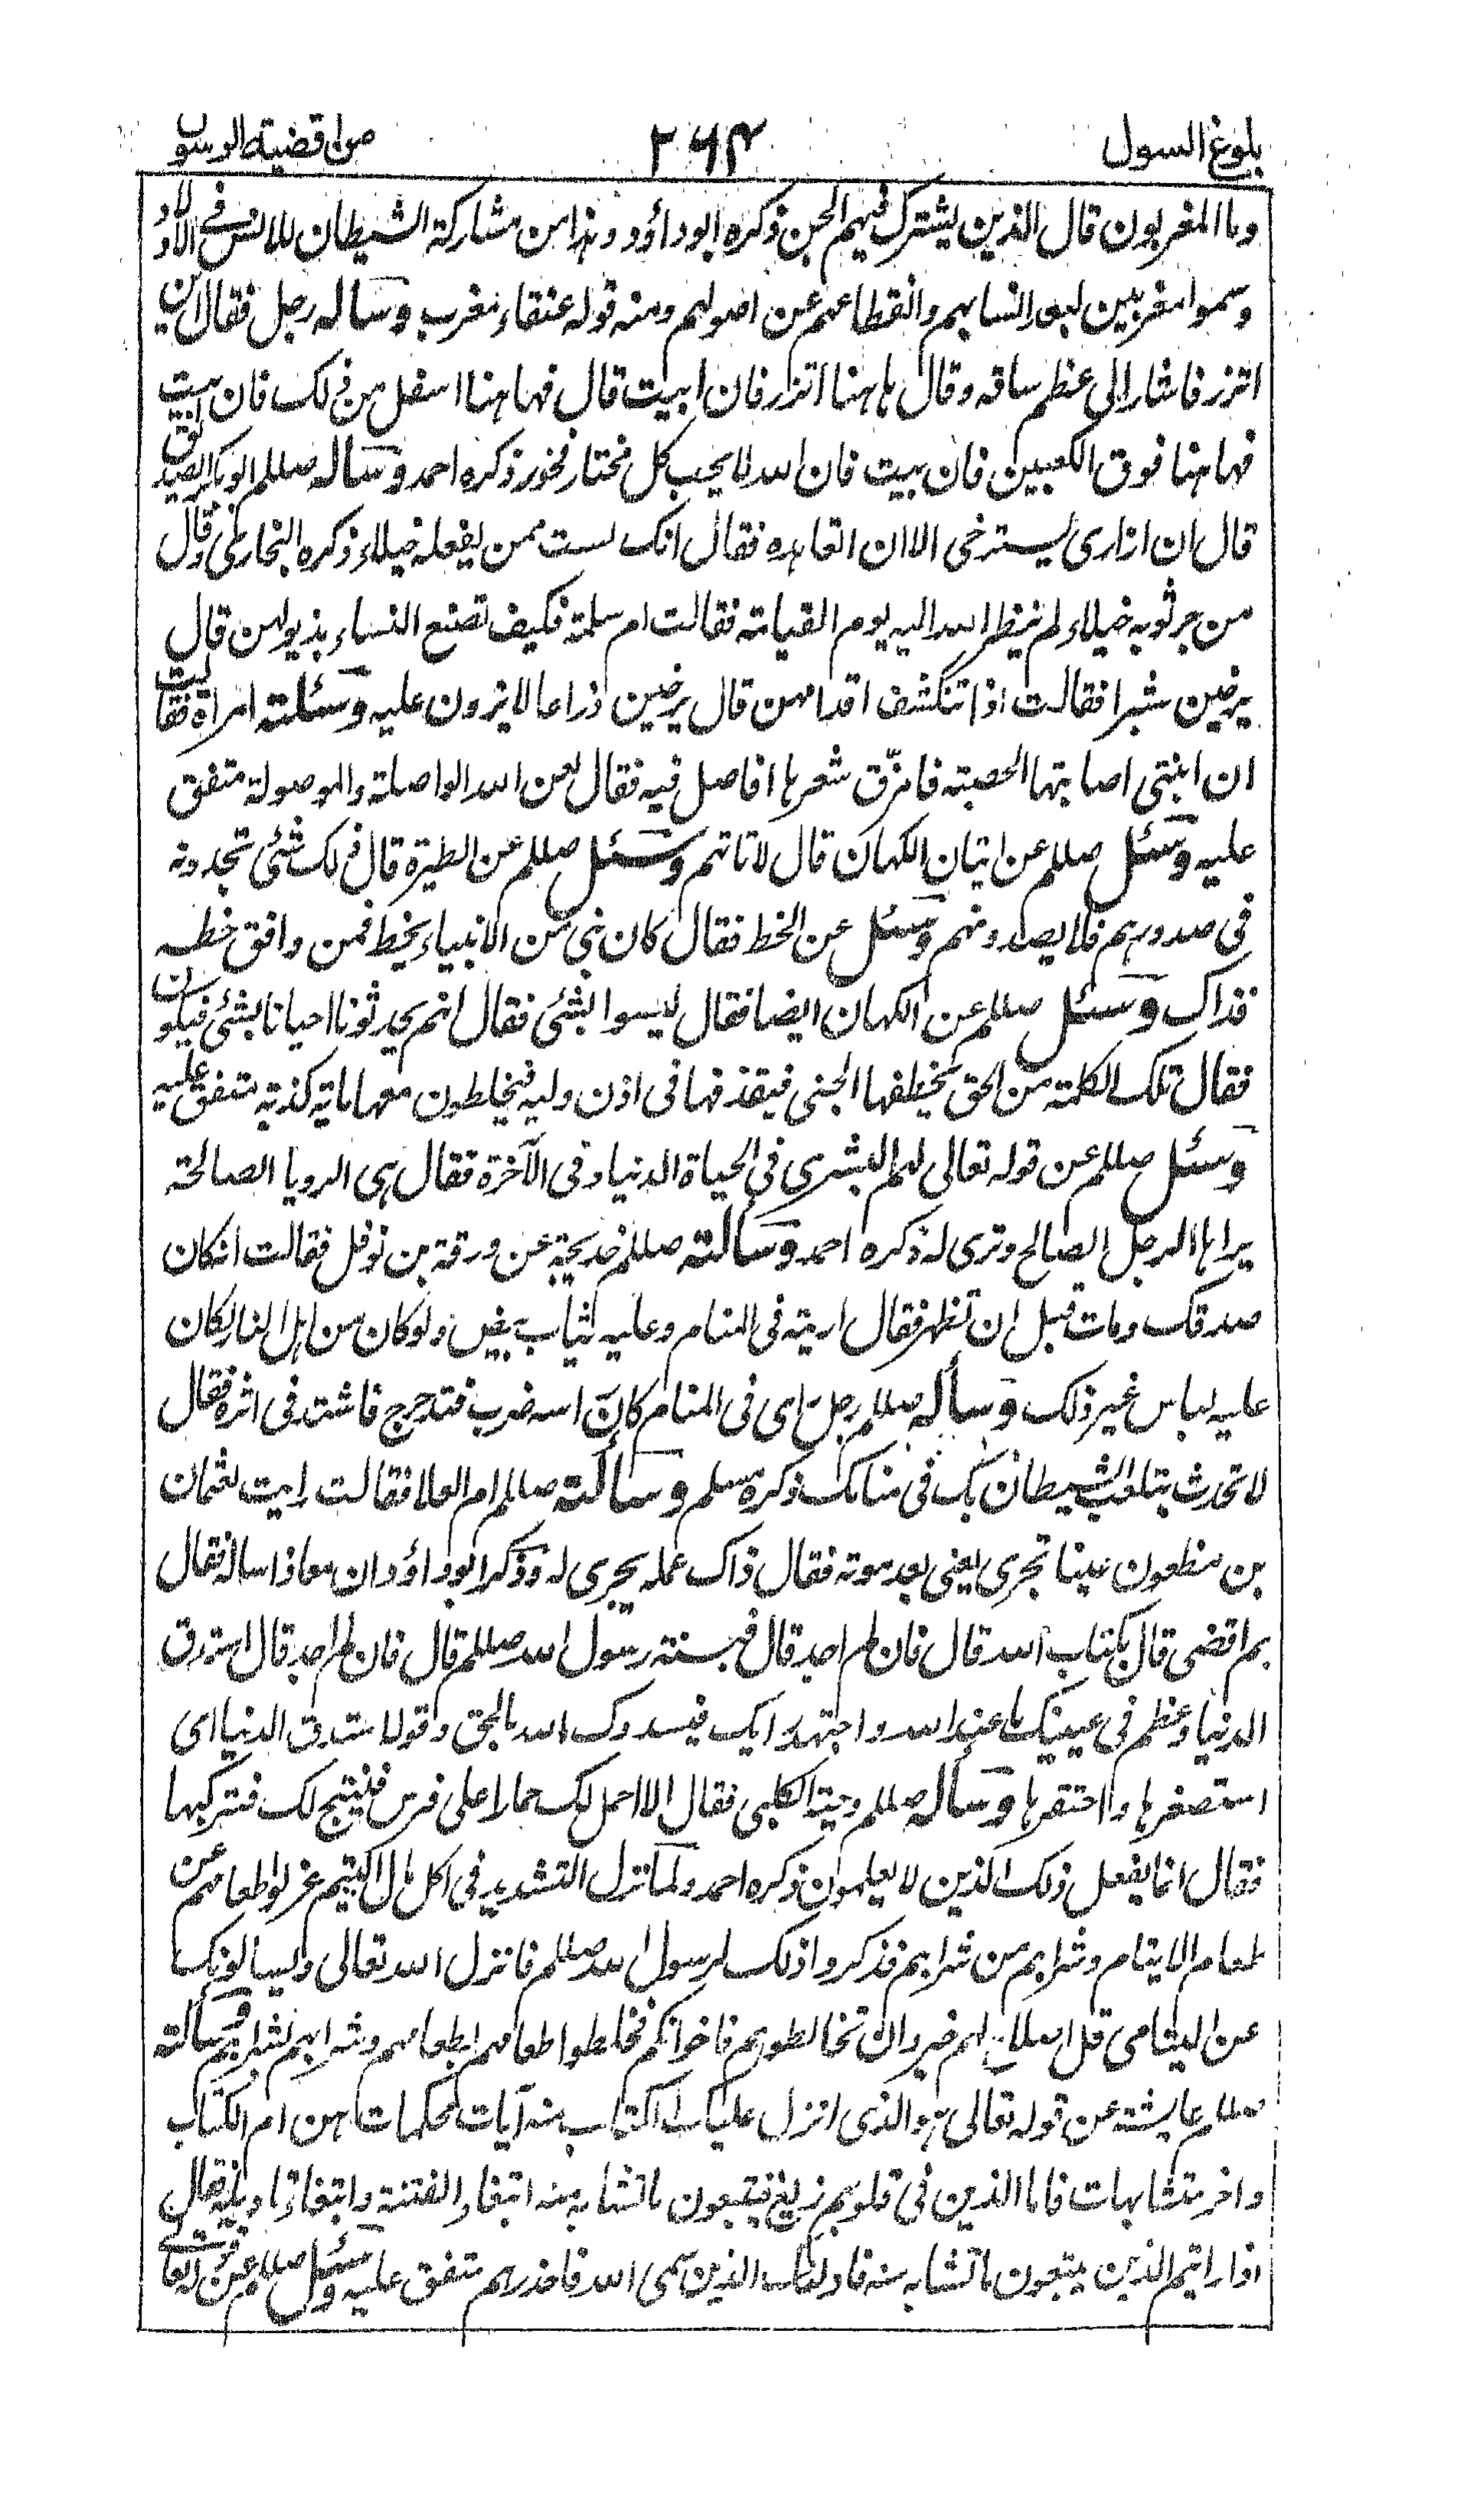 بلوغ السول
۲۶۴
من اقضية الرسول
وما المغربون قال الذين يشترك فيهم الجن ذكره ابوداؤد وہذا من مشاركة الشيطان للانس فے الاولاد
وسموا مغربين لبعد انسابہم وانقطاعہم عن اصولہم ومنه قوله عنقاء مغرب وسأله رجل فقال اين
اتزر فاشار الى عظم ساقه وقال ہاہنا اتزر فان ابيت قال فہاہنا اسفل من ذلك فان بيت
فہاہنا فوق الكعبين فان بيت فان الله لا يحب كل مختار فخور ذكره احمد وسأله صللم ابوبكر الصديق
قال ان ازارى يسترخى الا ان اتعاہده فقال انك لست ممن يفعله خيلاء ذكره البخارى وقال
من جر ثوبه خيلاء لم ينظر الله اليه يوم القيامة فقالت ام سلمة فكيف تصنع النساء بذيولہن قال
يرخين شبرا فقالت اذا تنكشف اقدامہن قال يرخين ذراعا لا يزدن عليه وسئلته امرأة فقالت
ان ابنتى اصابتہا الحصبة فامزّق شعرہا افاصل فيه فقال لعن الله الواصلة والموصولة متفق
عليه وسئل صللم عن اتيان الكہان قال لا تاتہم وسئل صللم عن الطيرة قال ذلك شئى تجدونه
فى صدورہم فلا يصدونہم وسئل عن الخط فقال كان نبى من الانبياء يخط فمن وافق خطه
فذاك وسئل صللم عن الكہان ايضا فقال ليسوا بشئى فقال انہم يحدثونا احيانا بشئى فيكون
فقال تلك الكلمة من الحق يخطفہا الجنى فيقذفہا فى اذن وليه فيخلطون معہا ماية كذبة متفق عليه
وسئل صللم عن قوله تعالى لہم البشرى فى الحياة الدنيا وفى الآخرة فقال ہى الرويا الصالحة
يراہا الرجل الصالح وترى له ذكره احمد وسألته صللم خديجة عن ورقة بن نوفل فقالت انكان
صدقك ومات قبل ان تظہر فقال اريته فى المنام وعليه ثياب بيض ولو كان من اہل النار لكان
عليه لباس غير ذلك وسأله صللم رجل رأى فى المنام كان راسه ضرب فتدحرج فاشتد فى اثره فقال
لا تحدث بتلعب الشيطان بك فى منامك ذكره مسلم وسألته صللم ام العلا فقالت رايت لعثمان
بن مظعون عينا تجرى يعنى بعد موته فقال ذاك عمله يجرى له وذكر ابوداؤد ان معاذا ساله فقال
بم اقضى قال بكتاب الله قال فان لم اجد قال فبسنة رسول الله صللم قال فان لم اجد قال استدق
الدنيا وعظم فى عينيك ما عند الله واجتہد رايك فيسددك الله بالحق وقوله استدق الدنيا اى
استصغرہا واحتقرہا وسأله صللم دحية الكلبى فقال الا احمل لك حمارا على فرس فينتج لك فتركبہا
فقال انما يفعل ذلك الذين لا يعلمون ذكره احمد ولما نزل التشديد فى اكل مال اليتيم عزلوا طعامہم عن
طعام الايتام وشرابہم من شرابہم فذكروا ذلك لرسول الله صللم فانزل الله تعالى ويسالونك
عن اليتامى قل اصلاح لہم خير وان تخالطوہم فاخوانكم فخلطوا طعامہم بطعامہم وشرابہم بشرابہم وسألته
صللم عايشة عن قوله تعالى ہو الذى انزل عليك الكتاب منه آيات محكمات ہن ام الكتاب
واخر متشابہات فاما الذين فى قلوبہم زيغ فيتبعون ما تشابه منه ابتغاء الفتنة وابتغاء تاويله فقال
اذا رايتم الذين يتبعون ما تشابه منه فاولئك الذين سمى الله فاحذرہم متفق عليه وسئل صللم عن قوله تعالى